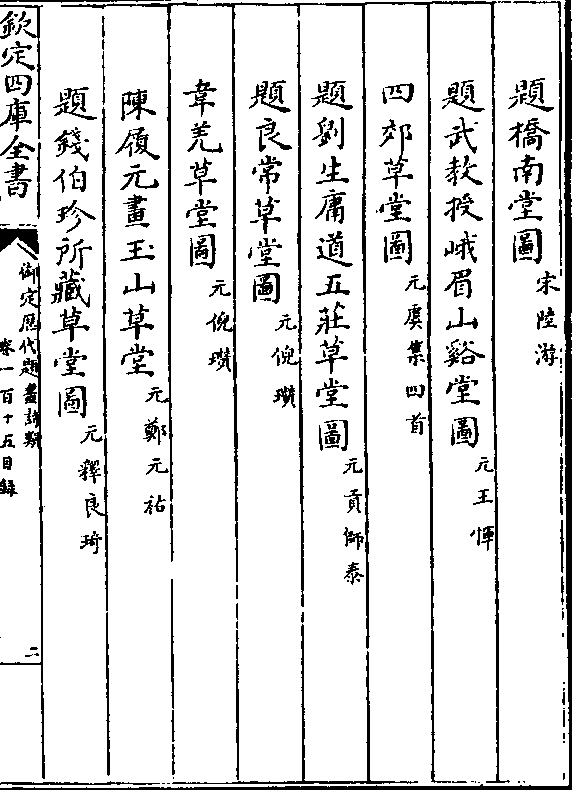 題橋南堂圖 宋陸游
題武教授峨眉山谿堂圖 元王惲
四郊草堂圖 元虞集四首
題劉生庸道五莊草堂圖 元貢師泰
題良常草堂圖 元倪瓚
韋羌草堂圖 元倪瓚
陳履元畫玉山草堂 元鄭元祐
題錢伯珍所藏草堂圖 元釋良琦
欽定四庫全書
御定歷代題畫詩類
卷一百十五目錄
二